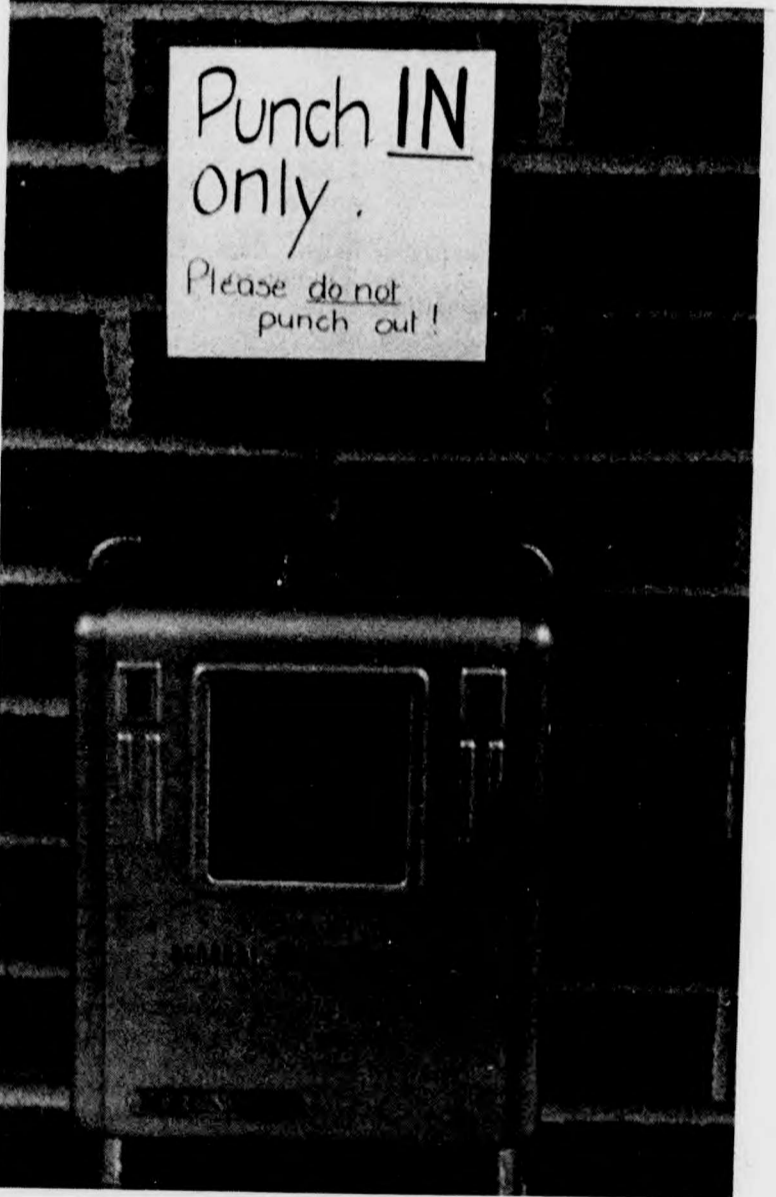 Punch IN
only.
Please do not
punch out!